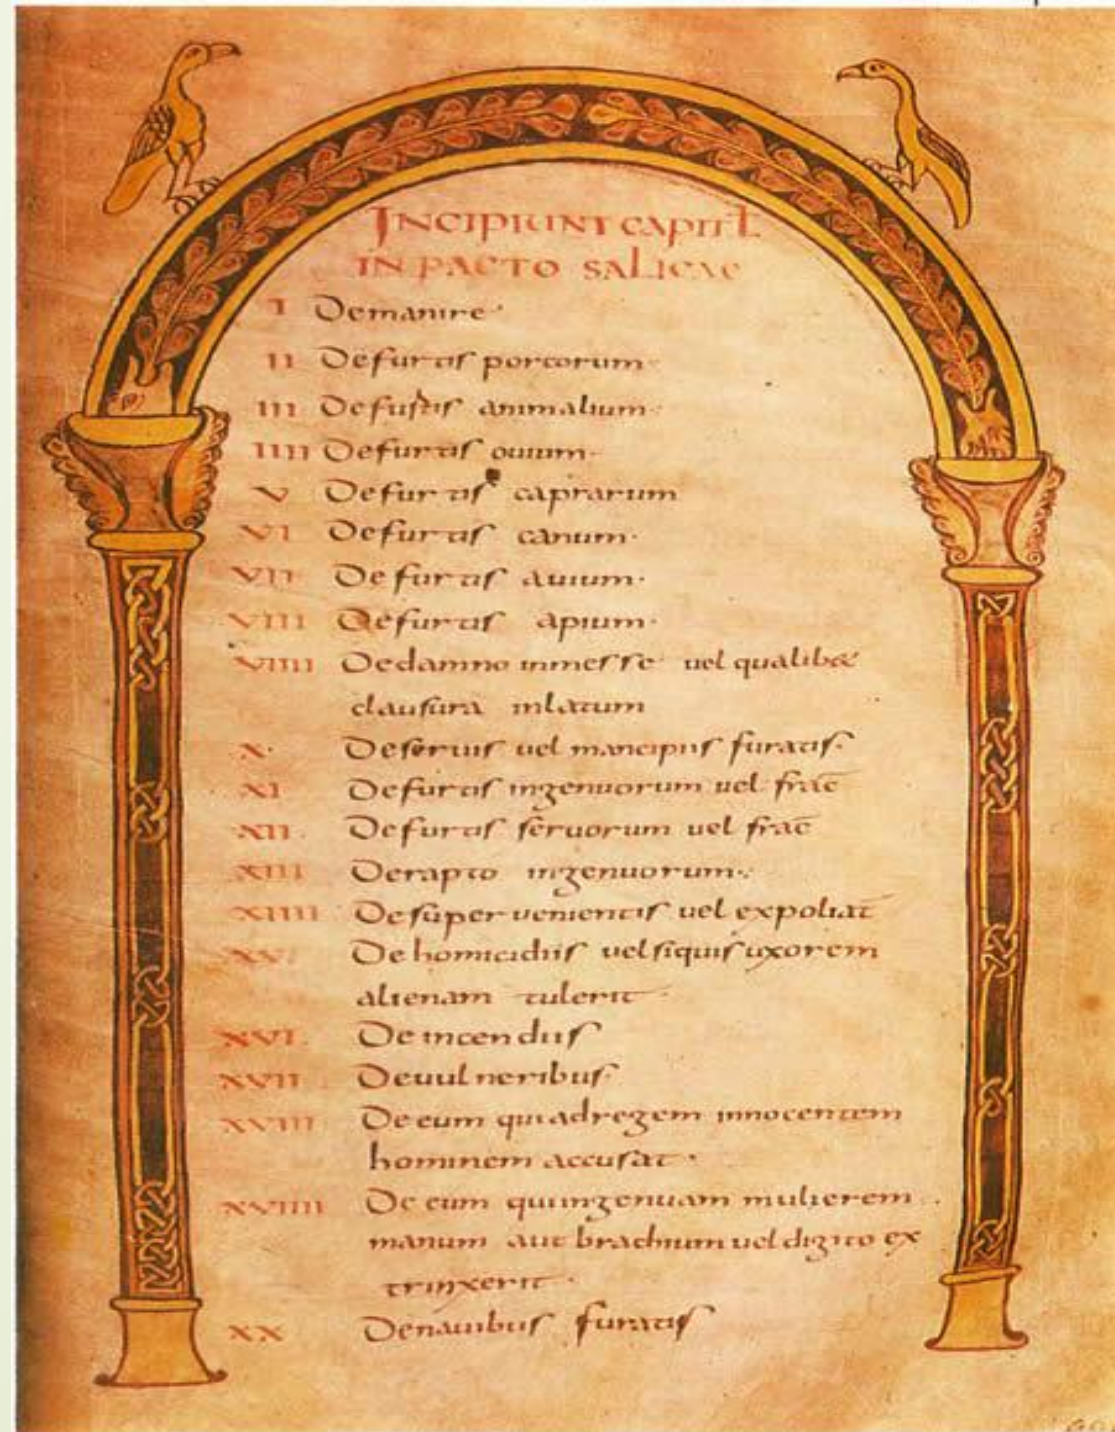 INCIPIUNT CAPITL
IN PACTO SALICAE
I Demanire·
II Defurtis porcorum·
III Defurtis animalium·
IIII Defurtis ouium·
V Defurtis caprarum
VI Defurtis canum·
VII Defurtis auium·
VIII Defurtis apium·
VIIII Dedamno inmesse vel qualibet
clausura inlatum
X· Deseruis vel mancipiis furatis·
XI Defurtis ingenuorum vel frac̄
XII· Defurtis seruorum vel frac̄
XIII Derapto ingenuorum·
XIIII Desuperuenientis vel expoliat̄
XV· Dehomicidiis velsiquis uxorem
alienam tulerit·
XVI· Deincendiis
XVII Deuulneribus·
XVIII De eum qui adregem innocentem
hominem accusat·
XVIIII De eum quiingenuam mulierem
manum aut brachium vel digito ex
trinxerit·
XX Denauibus furatis